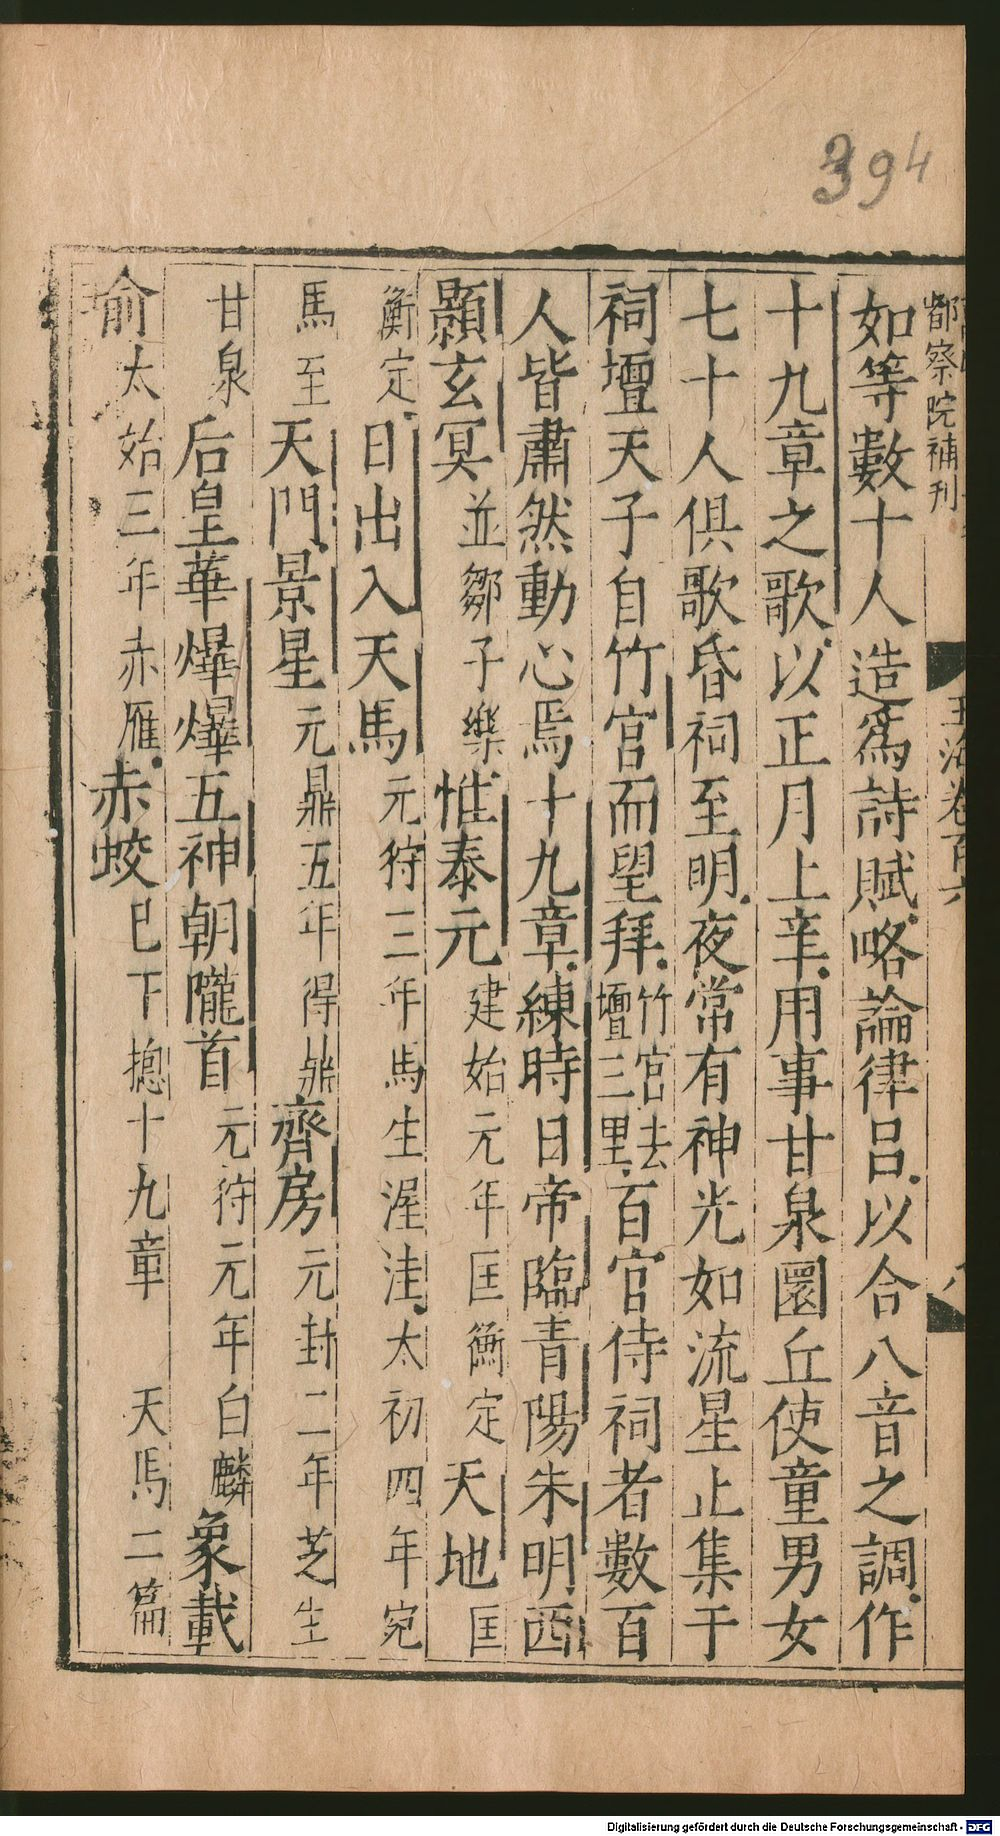 394
都察院補刊
玉海卷百六
八
如等數十人造爲詩賦略論律呂以合八音之調作
十九章之歌以正月上辛用事甘泉圜丘使童男女
七十人俱歌昏祠至明夜常有神光如流星止集于
祠壇天子自竹宮而望拜竹宮去壇三里百官侍祠者數百
人皆肅然動心焉十九章練時日帝臨青陽朱明西
顥玄冥並鄒子樂惟泰元建始元年匡衡定天地匡
衡定日出入天馬元狩三年馬生渥洼太初四年宛
馬至天門景星元鼎五年得鼎齊房元封二年芝生
甘泉后皇華爗爗五神朝隴首元狩元年白麟象載
瑜太始三年赤雁赤蛟已下摠十九章 天馬二篇
Digitalisierung gefördert durch die Deutsche Forschungsgemeinschaft - DFG